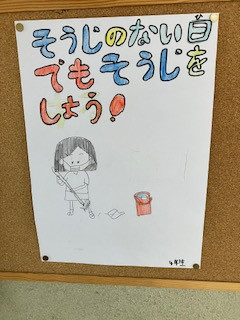 そうじのない日を
でもそうじを
しよう!
4年生